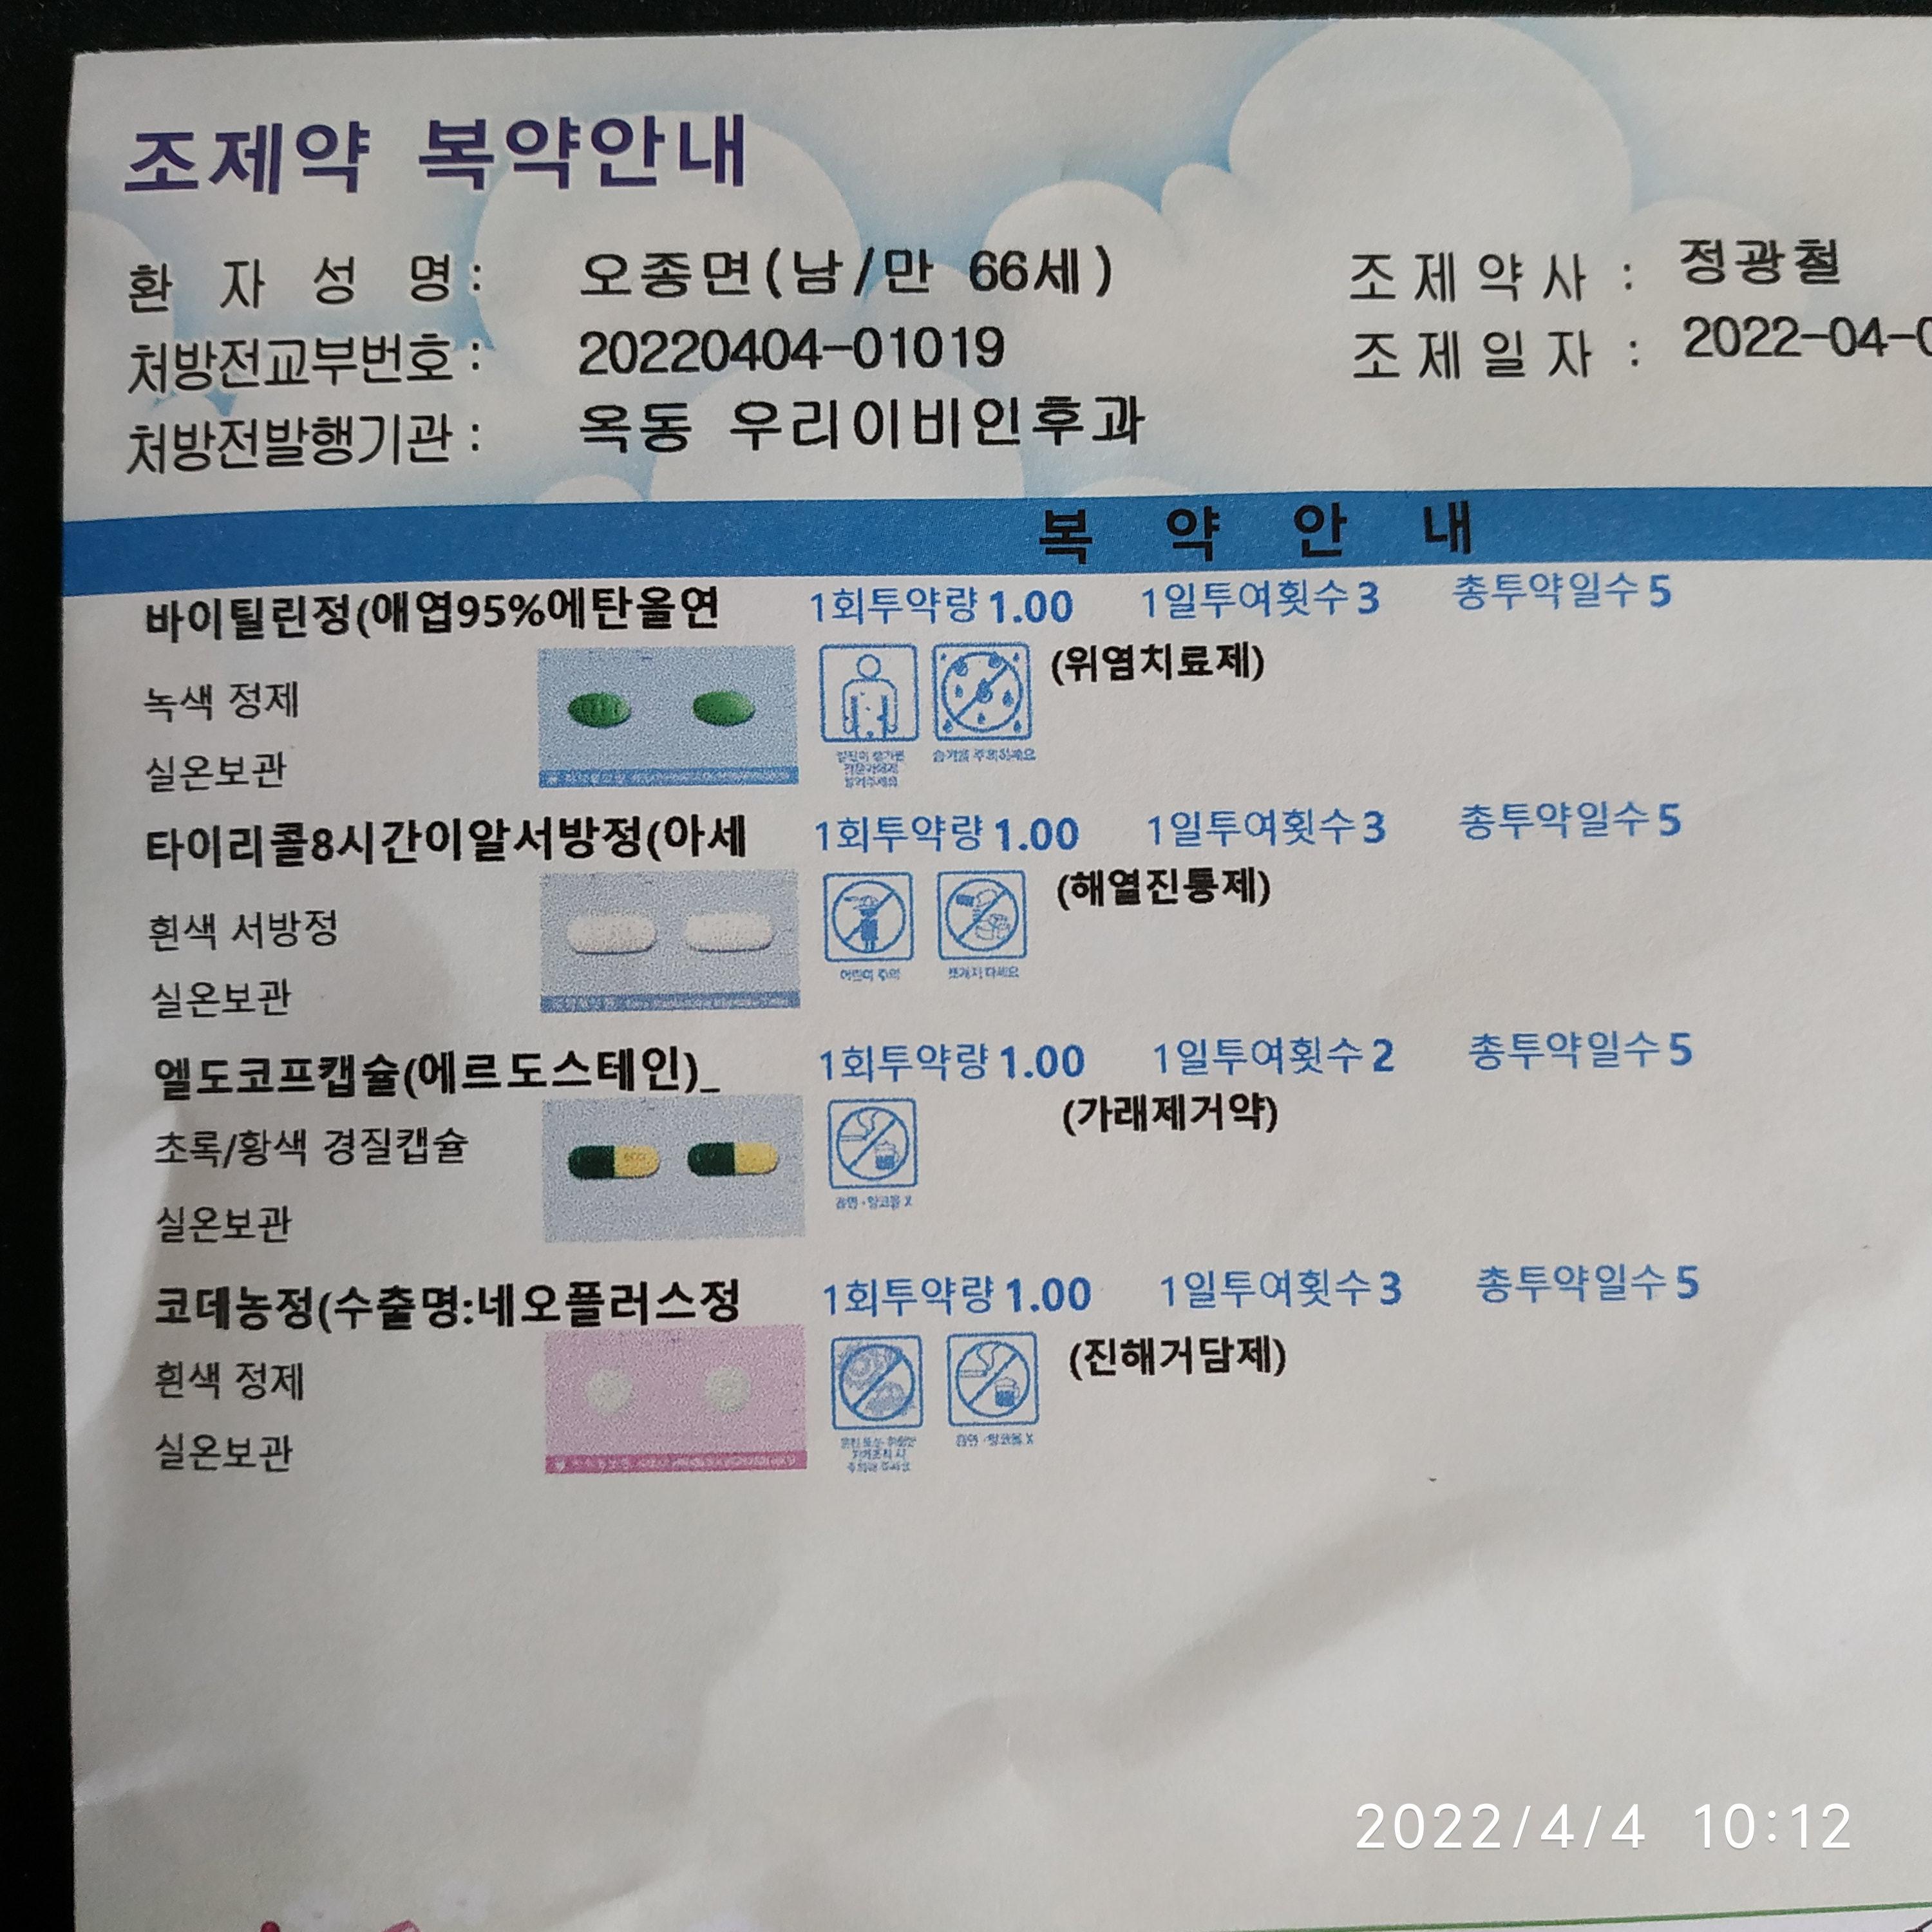 조제약 복약안내
환 자 성 명 : 오종면(남/만 66세) 조 제 약 사 : 정광철
처방전교부번호 : 20220404-01019 조 제 일 자 : 2022-04-0
처방전발행기관 : 옥동 우리이비인후과
복 약 안 내
바이틸린정(애엽95%에탄올연 1회투약량 1.00 1일투여횟수 3 총투약일수 5
(위염치료제)
녹색 정제
습기를 주의하세요
실온보관
타이리콜8시간이알서방정(아세 1회투약량 1.00 1일투여횟수 3 총투약일수 5
(해열진통제)
흰색 서방정
어린이 주의 쪼개지 마세요
실온보관
엘도코프캡슐(에르도스테인)_ 1회투약량 1.00 1일투여횟수 2 총투약일수 5
(가래제거약)
초록/황색 경질캡슐
흡연·알코올 X
실온보관
코데농정(수출명:네오플러스정 1회투약량 1.00 1일투여횟수 3 총투약일수 5
(진해거담제)
흰색 정제
흡연·알코올 X
실온보관
2022/4/4 10:12